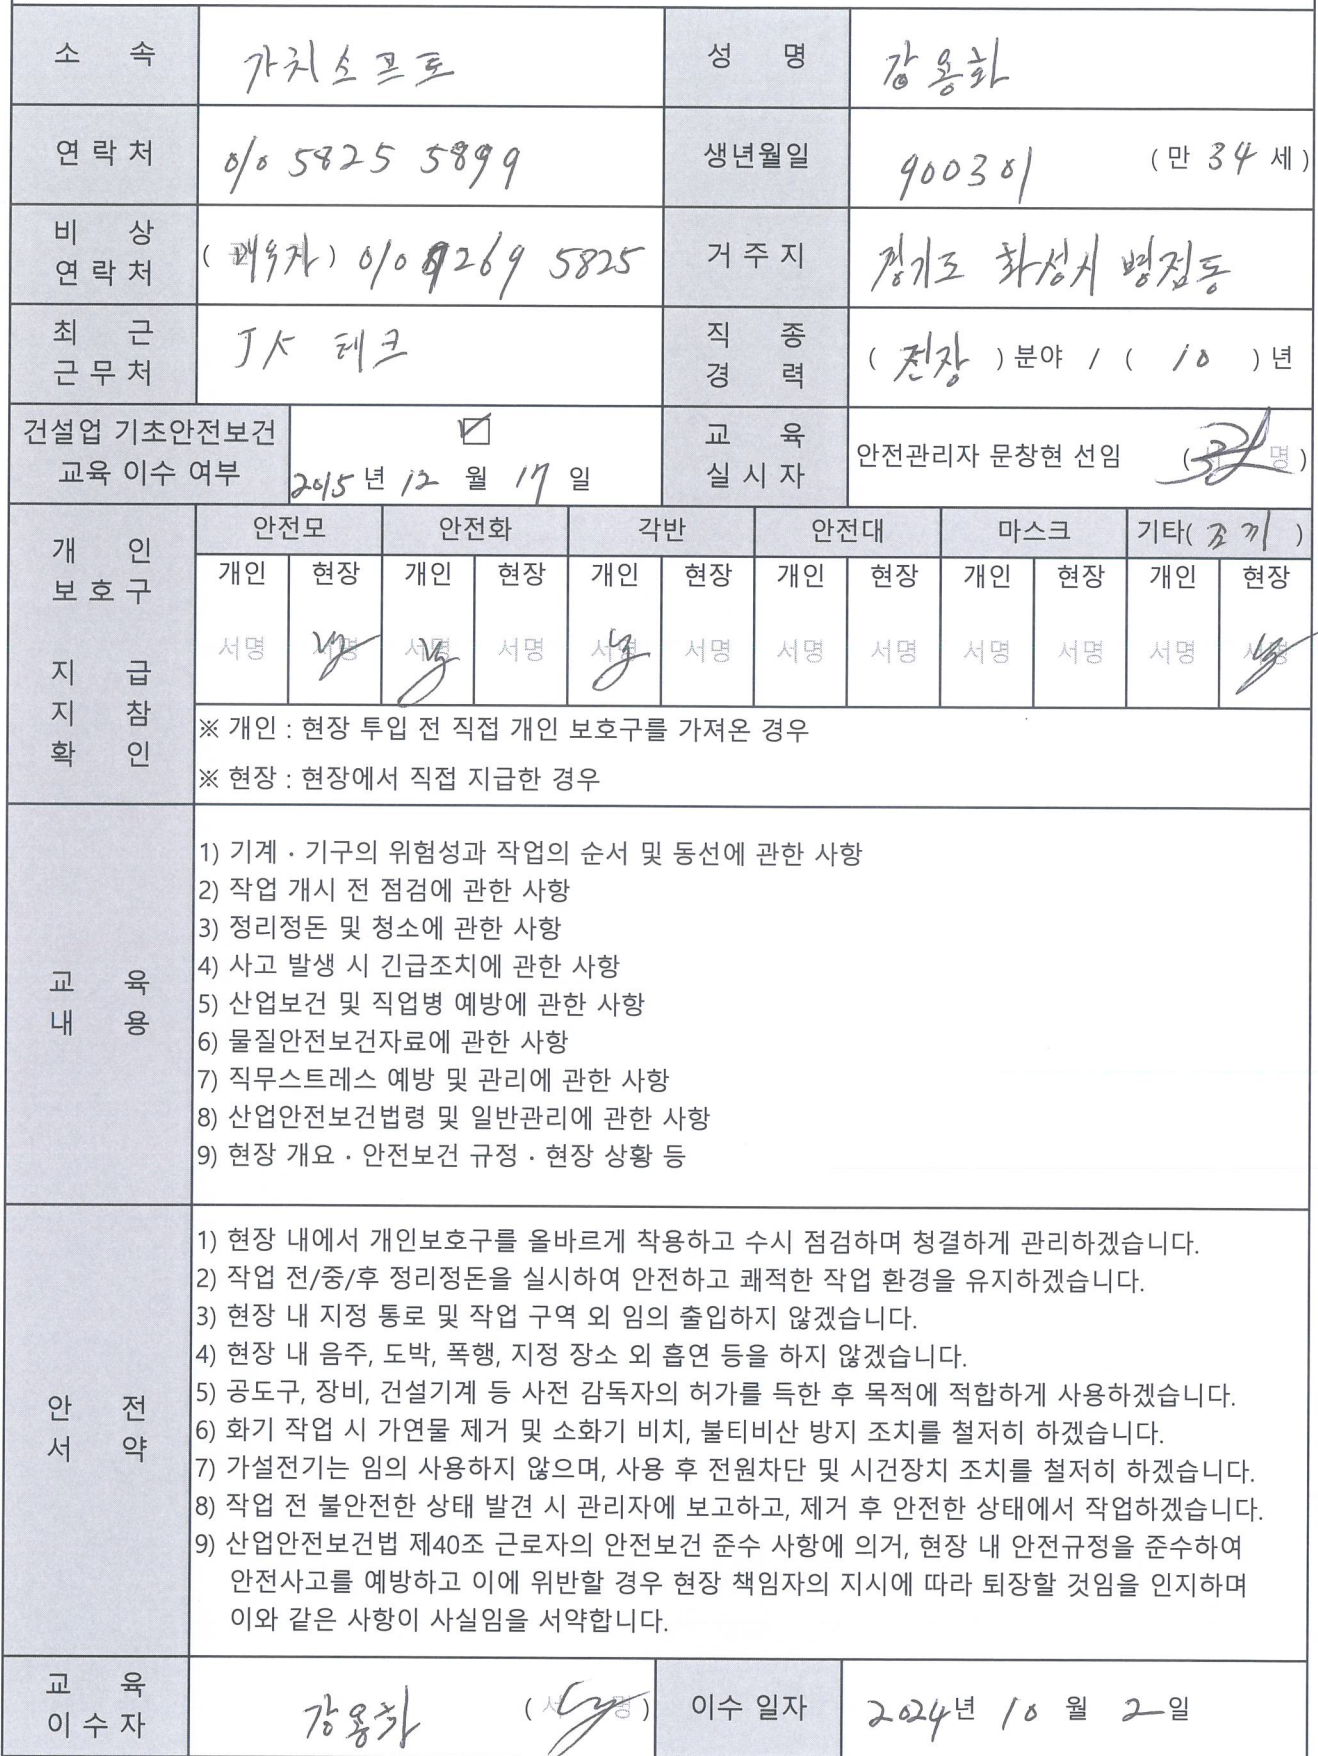 소 속 가치소프트 성 명 강용화
연 락 처 010 5825 5899 생년월일 900301 ( 만 34 세 )
비 상
연 락 처 ( 배우자 ) 010 9269 5825 거 주 지 경기도 화성시 병점동
최 근
근 무 처 JK 테크 직 종
경 력 ( 전장 ) 분야 / ( 10 ) 년
건설업 기초안전보건
교육 이수 여부 2015 년 12 월 17 일 교 육
실 시 자 안전관리자 문창현 선임 ( 서 명 )
개 인
보 호 구
지 급
지 참
확 인
안전모 안전화 각반 안전대 마스크 기타( 조끼 )
개인 현장 개인 현장 개인 현장 개인 현장 개인 현장 개인 현장
서명 서명 서명 서명 서명 서명 서명 서명 서명 서명 서명 서명
※ 개인 : 현장 투입 전 직접 개인 보호구를 가져온 경우
※ 현장 : 현장에서 직접 지급한 경우
교 육
내 용
1) 기계 · 기구의 위험성과 작업의 순서 및 동선에 관한 사항
2) 작업 개시 전 점검에 관한 사항
3) 정리정돈 및 청소에 관한 사항
4) 사고 발생 시 긴급조치에 관한 사항
5) 산업보건 및 직업병 예방에 관한 사항
6) 물질안전보건자료에 관한 사항
7) 직무스트레스 예방 및 관리에 관한 사항
8) 산업안전보건법령 및 일반관리에 관한 사항
9) 현장 개요 · 안전보건 규정 · 현장 상황 등
안 전
서 약
1) 현장 내에서 개인보호구를 올바르게 착용하고 수시 점검하며 청결하게 관리하겠습니다.
2) 작업 전/중/후 정리정돈을 실시하여 안전하고 쾌적한 작업 환경을 유지하겠습니다.
3) 현장 내 지정 통로 및 작업 구역 외 임의 출입하지 않겠습니다.
4) 현장 내 음주, 도박, 폭행, 지정 장소 외 흡연 등을 하지 않겠습니다.
5) 공도구, 장비, 건설기계 등 사전 감독자의 허가를 득한 후 목적에 적합하게 사용하겠습니다.
6) 화기 작업 시 가연물 제거 및 소화기 비치, 불티비산 방지 조치를 철저히 하겠습니다.
7) 가설전기는 임의 사용하지 않으며, 사용 후 전원차단 및 시건장치 조치를 철저히 하겠습니다.
8) 작업 전 불안전한 상태 발견 시 관리자에 보고하고, 제거 후 안전한 상태에서 작업하겠습니다.
9) 산업안전보건법 제40조 근로자의 안전보건 준수 사항에 의거, 현장 내 안전규정을 준수하여
안전사고를 예방하고 이에 위반할 경우 현장 책임자의 지시에 따라 퇴장할 것임을 인지하며
이와 같은 사항이 사실임을 서약합니다.
교 육
이 수 자 강용화 ( 서 명 ) 이수 일자 2024년 10 월 2 일